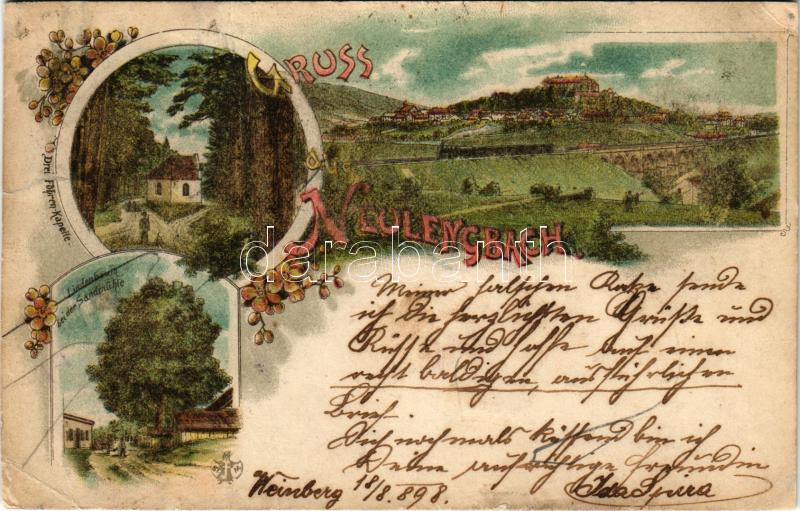 GRUSS
aus
NEULENGBACH.
Drei Föhren Kapelle.
Lindenbaum
bei der Sandmühle
darabanth.com
Meiner falschen Katze sende
ich die herzlichsten Grüße und
Küsse und hoffe auf einen
recht baldigen, ausführlichen
Brief.
Dich nochmals küssend bin ich
Deine aufrichtige Freundin
Weinberg 18/8.898. Ida Spira